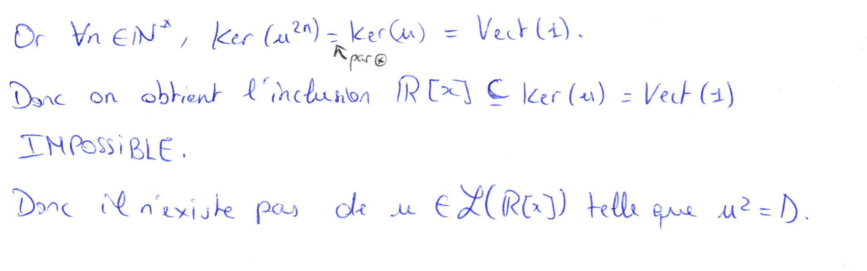 Or ∀n ∈ ℕ*, Ker(u²ⁿ) = Ker(u) = Vect(1).
↖ par ⊛
Donc on obtient l'inclusion ℝ[x] ⊆ Ker(u) = Vect(1)
IMPOSSIBLE.
Donc il n'existe pas de u ∈ ℒ(ℝ[x]) telle que u² = D.